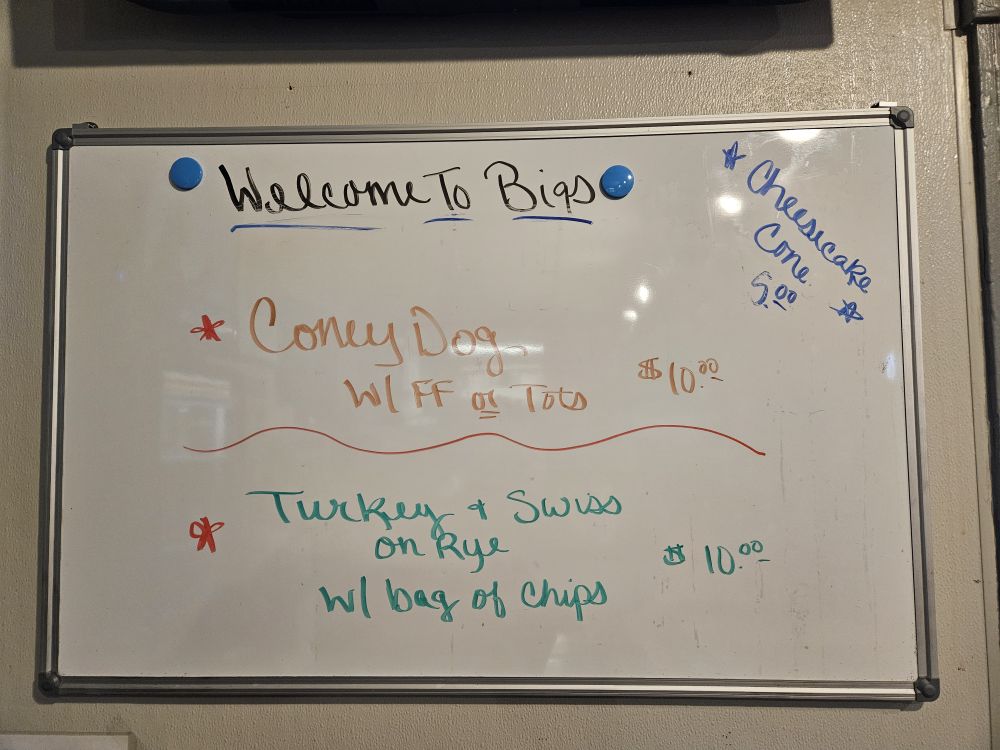 Welcome To Bigs
* Cheesecake
Cone
5.00 *
* Coney Dog
W/ FF or Tots
$10.00
* Turkey + Swiss
on Rye
w/ bag of chips
$10.00